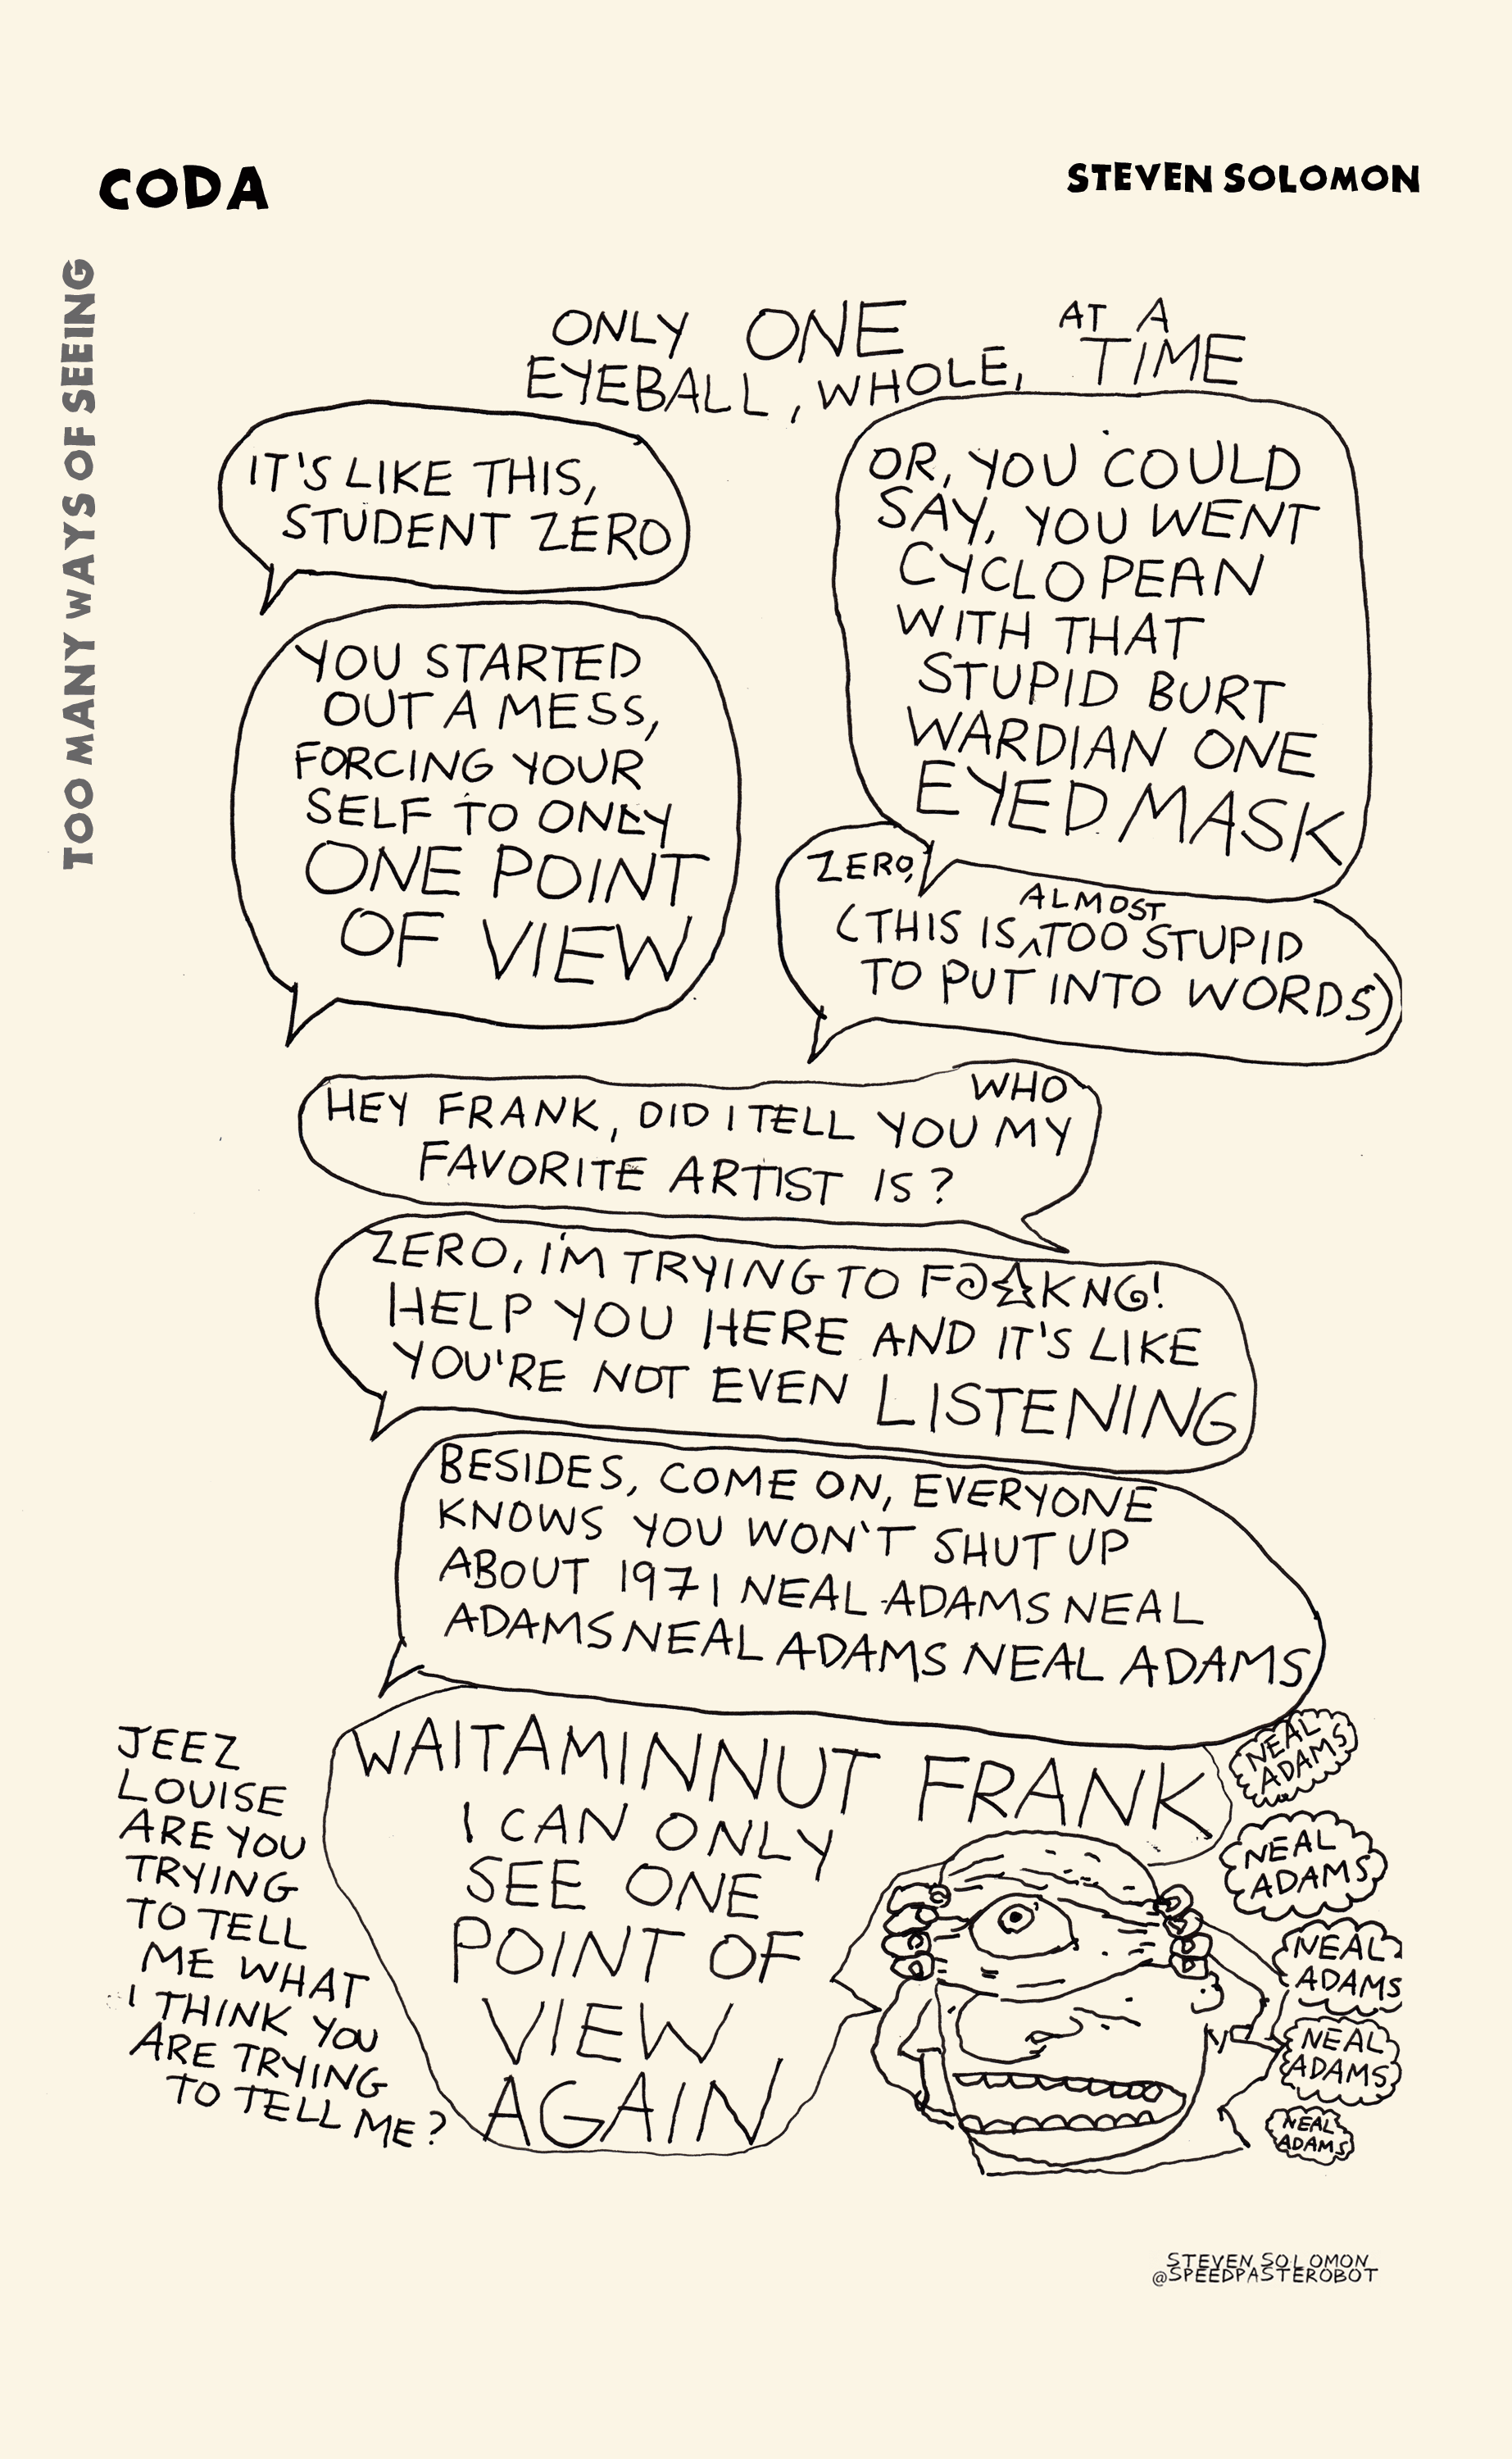 CODA
STEVEN SOLOMON
TOO MANY WAYS OF SEEING
ONLY ONE AT A
EYEBALL, WHOLE, TIME
IT'S LIKE THIS,
STUDENT ZERO
YOU STARTED
OUT A MESS,
FORCING YOUR
SELF TO ONLY
ONE POINT
OF VIEW
OR, YOU COULD
SAY, YOU WENT
CYCLOPEAN
WITH THAT
STUPID BURT
WARDIAN ONE
EYED MASK
ZERO,
ALMOST
(THIS IS ^ TOO STUPID
TO PUT INTO WORDS)
WHO
HEY FRANK, DID I TELL YOU MY
FAVORITE ARTIST IS?
ZERO, I'M TRYING TO F@☆KNG!
HELP YOU HERE AND IT'S LIKE
YOU'RE NOT EVEN LISTENING
BESIDES, COME ON, EVERYONE
KNOWS YOU WON'T SHUT UP
ABOUT 1971 NEAL ADAMS NEAL
ADAMS NEAL ADAMS NEAL ADAMS
WAITAMINNUT FRANK
I CAN ONLY
SEE ONE
POINT OF
VIEW
AGAIN
JEEZ
LOUISE
ARE YOU
TRYING
TO TELL
ME WHAT
I THINK YOU
ARE TRYING
TO TELL ME?
NEAL
ADAMS
NEAL
ADAMS
NEAL
ADAMS
NEAL
ADAMS
NEAL
ADAMS
STEVEN SOLOMON
@SPEEDPASTEROBOT